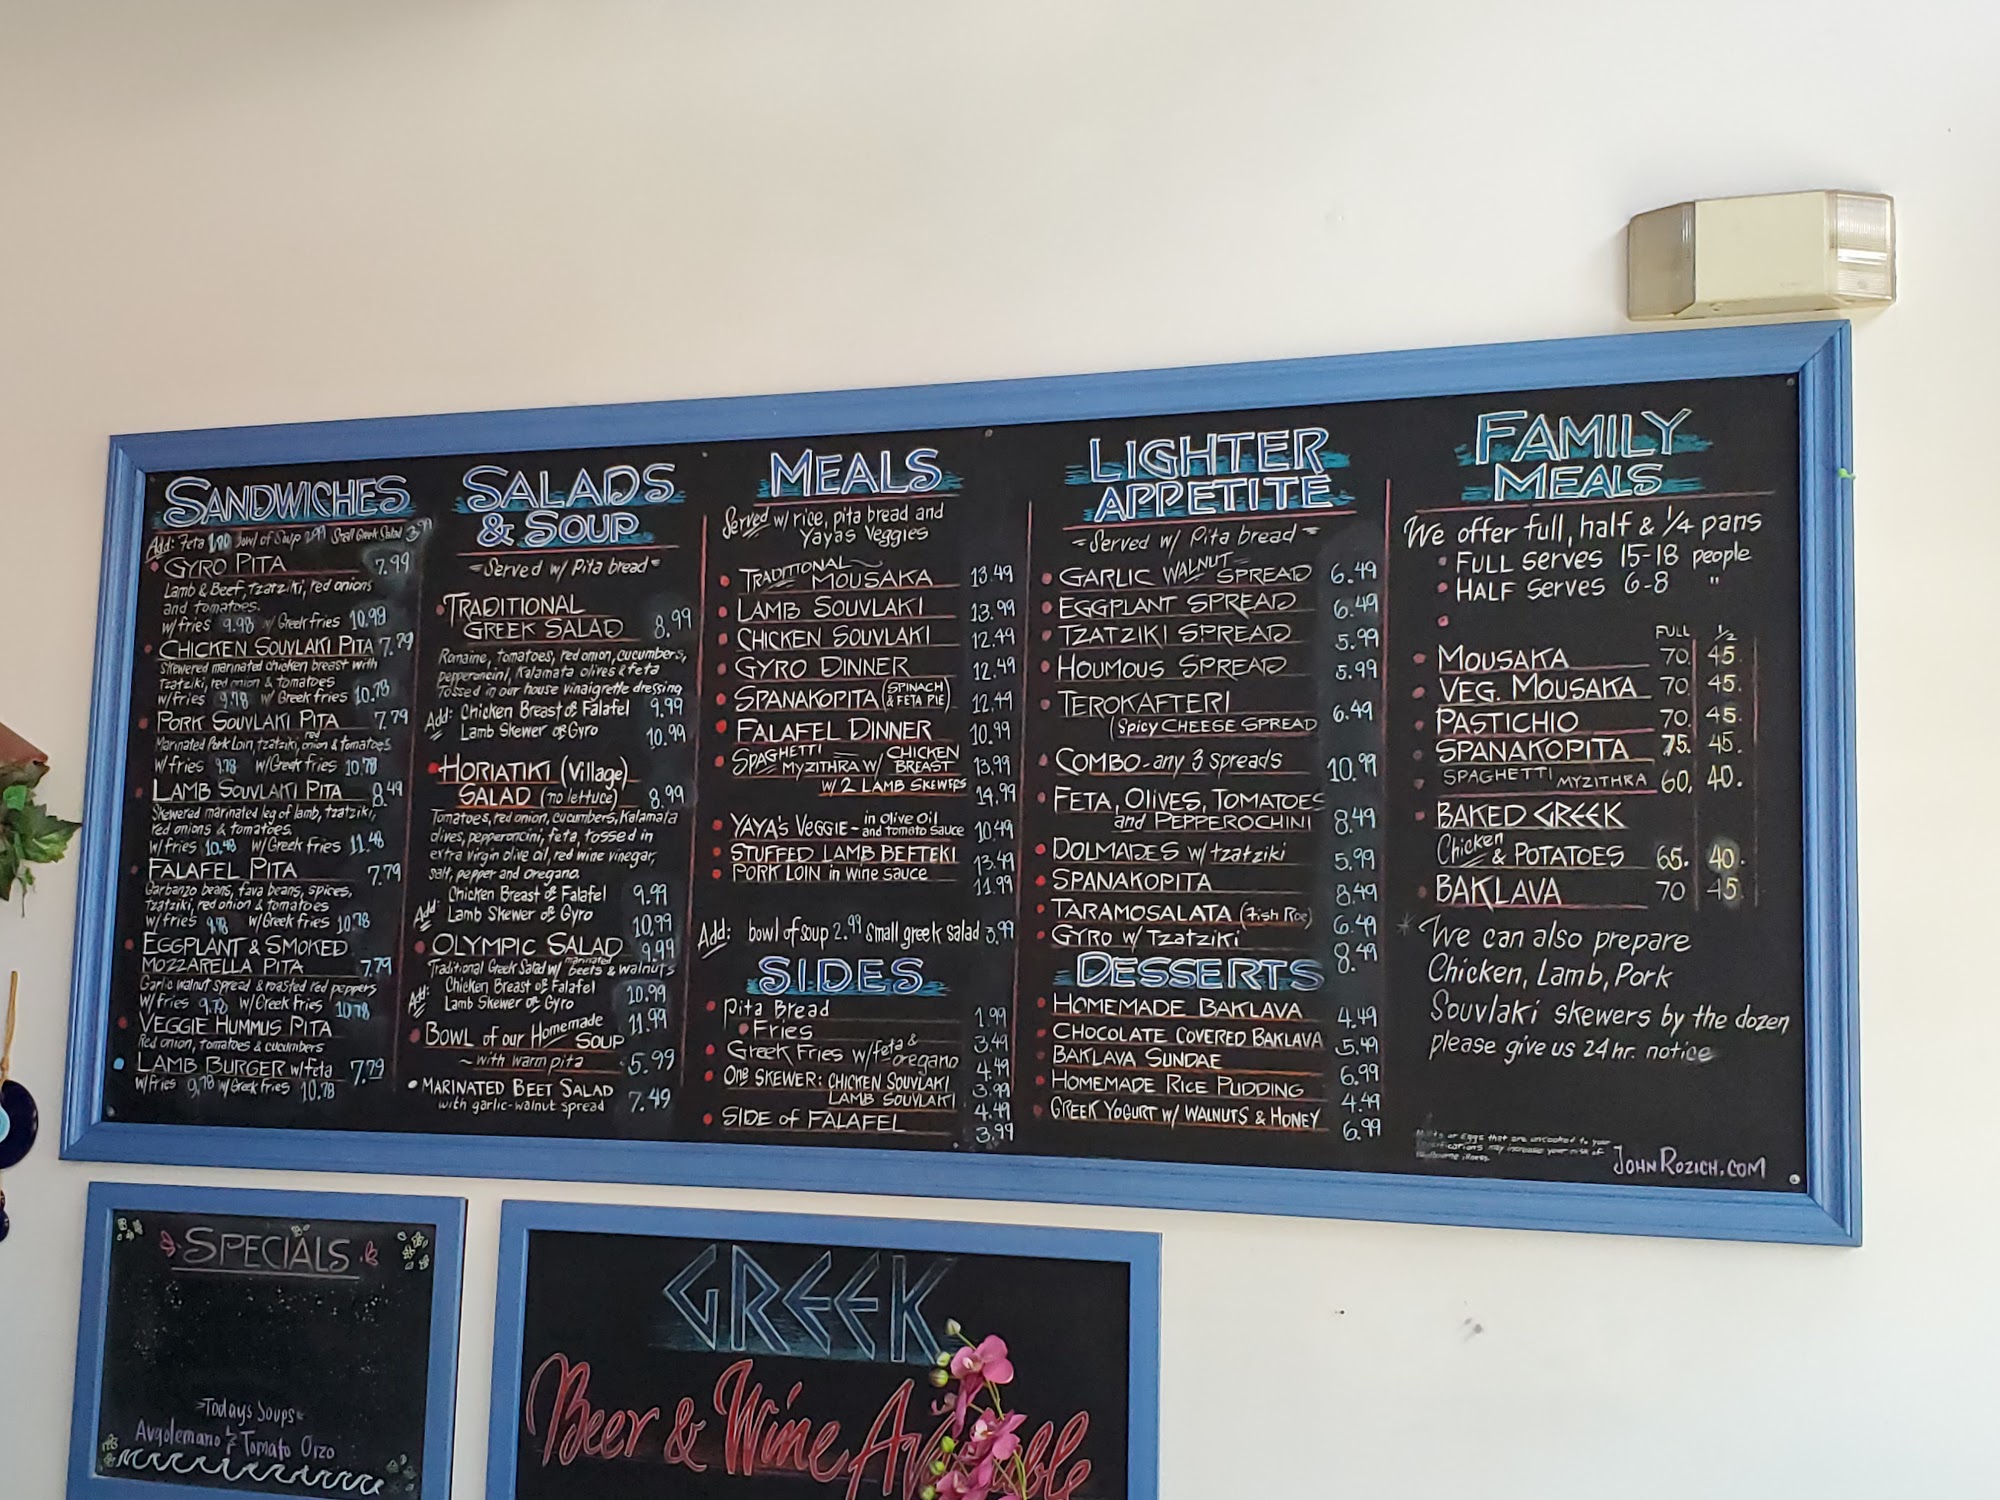 SANDWICHES
Add: Feta 1.00 bowl of Soup 2.99 Small Greek Salad 3.99
GYRO PITA 7.99
Lamb & Beef, tzatziki, red onions
and tomatoes.
w/fries 9.98 w/Greek fries 10.98
CHICKEN SOUVLAKI PITA 7.79
Skewered marinated chicken breast with
Tzatziki, red onion & tomatoes
w/fries 9.78 w/Greek fries 10.78
PORK SOUVLAKI PITA 7.79
Marinated Pork Loin, tzatziki, red onion & tomatoes
w/fries 9.78 w/Greek fries 10.78
LAMB SOUVLAKI PITA 8.49
Skewered marinated leg of lamb, tzatziki,
red onions & tomatoes.
w/fries 10.48 w/Greek fries 11.48
FALAFEL PITA 7.79
Garbanzo beans, fava beans, spices,
Tzatziki, red onion & tomatoes
w/fries 9.78 w/Greek fries 10.78
EGGPLANT & SMOKED
MOZZARELLA PITA 7.79
Garlic walnut spread & roasted red peppers
w/fries 9.78 w/Greek fries 10.78
VEGGIE HUMMUS PITA
Red onion, tomatoes & cucumbers
LAMB BURGER w/feta 7.79
w/fries 9.78 w/Greek fries 10.78
SALADS
& SOUP
Served w/ Pita bread
TRADITIONAL
GREEK SALAD 8.99
Romaine, tomatoes, red onion, cucumbers,
pepperoncini, Kalamata olives & feta
tossed in our house vinaigrette dressing
Add: Chicken Breast or Falafel 9.99
Lamb Skewer or Gyro 10.99
HORIATIKI (Village)
SALAD (no lettuce) 8.99
Tomatoes, red onion, cucumbers, Kalamata
olives, pepperoncini, feta, tossed in
extra virgin olive oil, red wine vinegar,
salt, pepper and oregano.
Add: Chicken Breast or Falafel 9.99
Lamb Skewer or Gyro 10.99
OLYMPIC SALAD 9.99
Traditional Greek Salad w/ marinated beets & walnuts
Add: Chicken Breast or Falafel 10.99
Lamb Skewer or Gyro 11.99
BOWL OF OUR Homemade
SOUP
~with warm pita 5.99
MARINATED BEET SALAD
with garlic-walnut spread 7.49
MEALS
Served w/ rice, pita bread and
Yayas Veggies
TRADITIONAL
MOUSAKA 13.49
LAMB SOUVLAKI 13.99
CHICKEN SOUVLAKI 12.49
GYRO DINNER 12.49
SPANAKOPITA (SPINACH & FETA PIE) 12.49
FALAFEL DINNER 10.99
SPAGHETTI MYZITHRA w/ CHICKEN BREAST 13.99
w/ 2 LAMB SKEWERS 14.99
YAYA'S VEGGIE - in olive oil and tomato sauce 10.49
STUFFED LAMB BEFTEKI 13.49
PORK LOIN in wine sauce 11.99
Add: bowl of soup 2.99 Small greek salad 3.99
SIDES
Pita Bread 1.99
Fries 3.49
Greek Fries w/feta & oregano 4.49
One SKEWER: CHICKEN SOUVLAKI 3.99
LAMB SOUVLAKI 4.49
SIDE of FALAFEL 3.99
LIGHTER
APPETITE
Served w/ Pita bread
GARLIC WALNUT SPREAD 6.49
EGGPLANT SPREAD 6.49
TZATZIKI SPREAD 5.99
HOUMOUS SPREAD 5.99
TEROKAFTERI 6.49
(Spicy CHEESE SPREAD
COMBO-any 3 spreads 10.99
FETA, OLIVES, TOMATOES
and PEPPEROCHINI 8.49
DOLMADES w/tzatziki 5.99
SPANAKOPITA 8.49
TARAMOSALATA (Fish Roe) 6.49
GYRO w/ Tzatziki 8.49
DESSERTS
HOMEMADE BAKLAVA 4.49
CHOCOLATE COVERED BAKLAVA 5.49
BAKLAVA SUNDAE 6.99
HOMEMADE RICE PUDDING 4.49
GREEK YOGURT w/ WALNUTS & HONEY 6.99
FAMILY
MEALS
We offer full, half & 1/4 pans
FULL serves 15-18 people
HALF serves 6-8 "
FULL 1/2
MOUSAKA 70 45.
VEG. MOUSAKA 70 45.
PASTICHIO 70. 45.
SPANAKOPITA 75. 45.
SPAGHETTI MYZITHRA 60. 40.
BAKED GREEK
Chicken & POTATOES 65. 40.
BAKLAVA 70 45.
* We can also prepare
Chicken, Lamb, Pork
Souvlaki skewers by the dozen
please give us 24 hr. notice
or Eggs that are uncooked to your
may increase your risk of
illness.
JOHNROZICH.COM
SPECIALS
Todays Soups
Avgolemano Tomato Orzo
GREEK
Beer & Wine Available